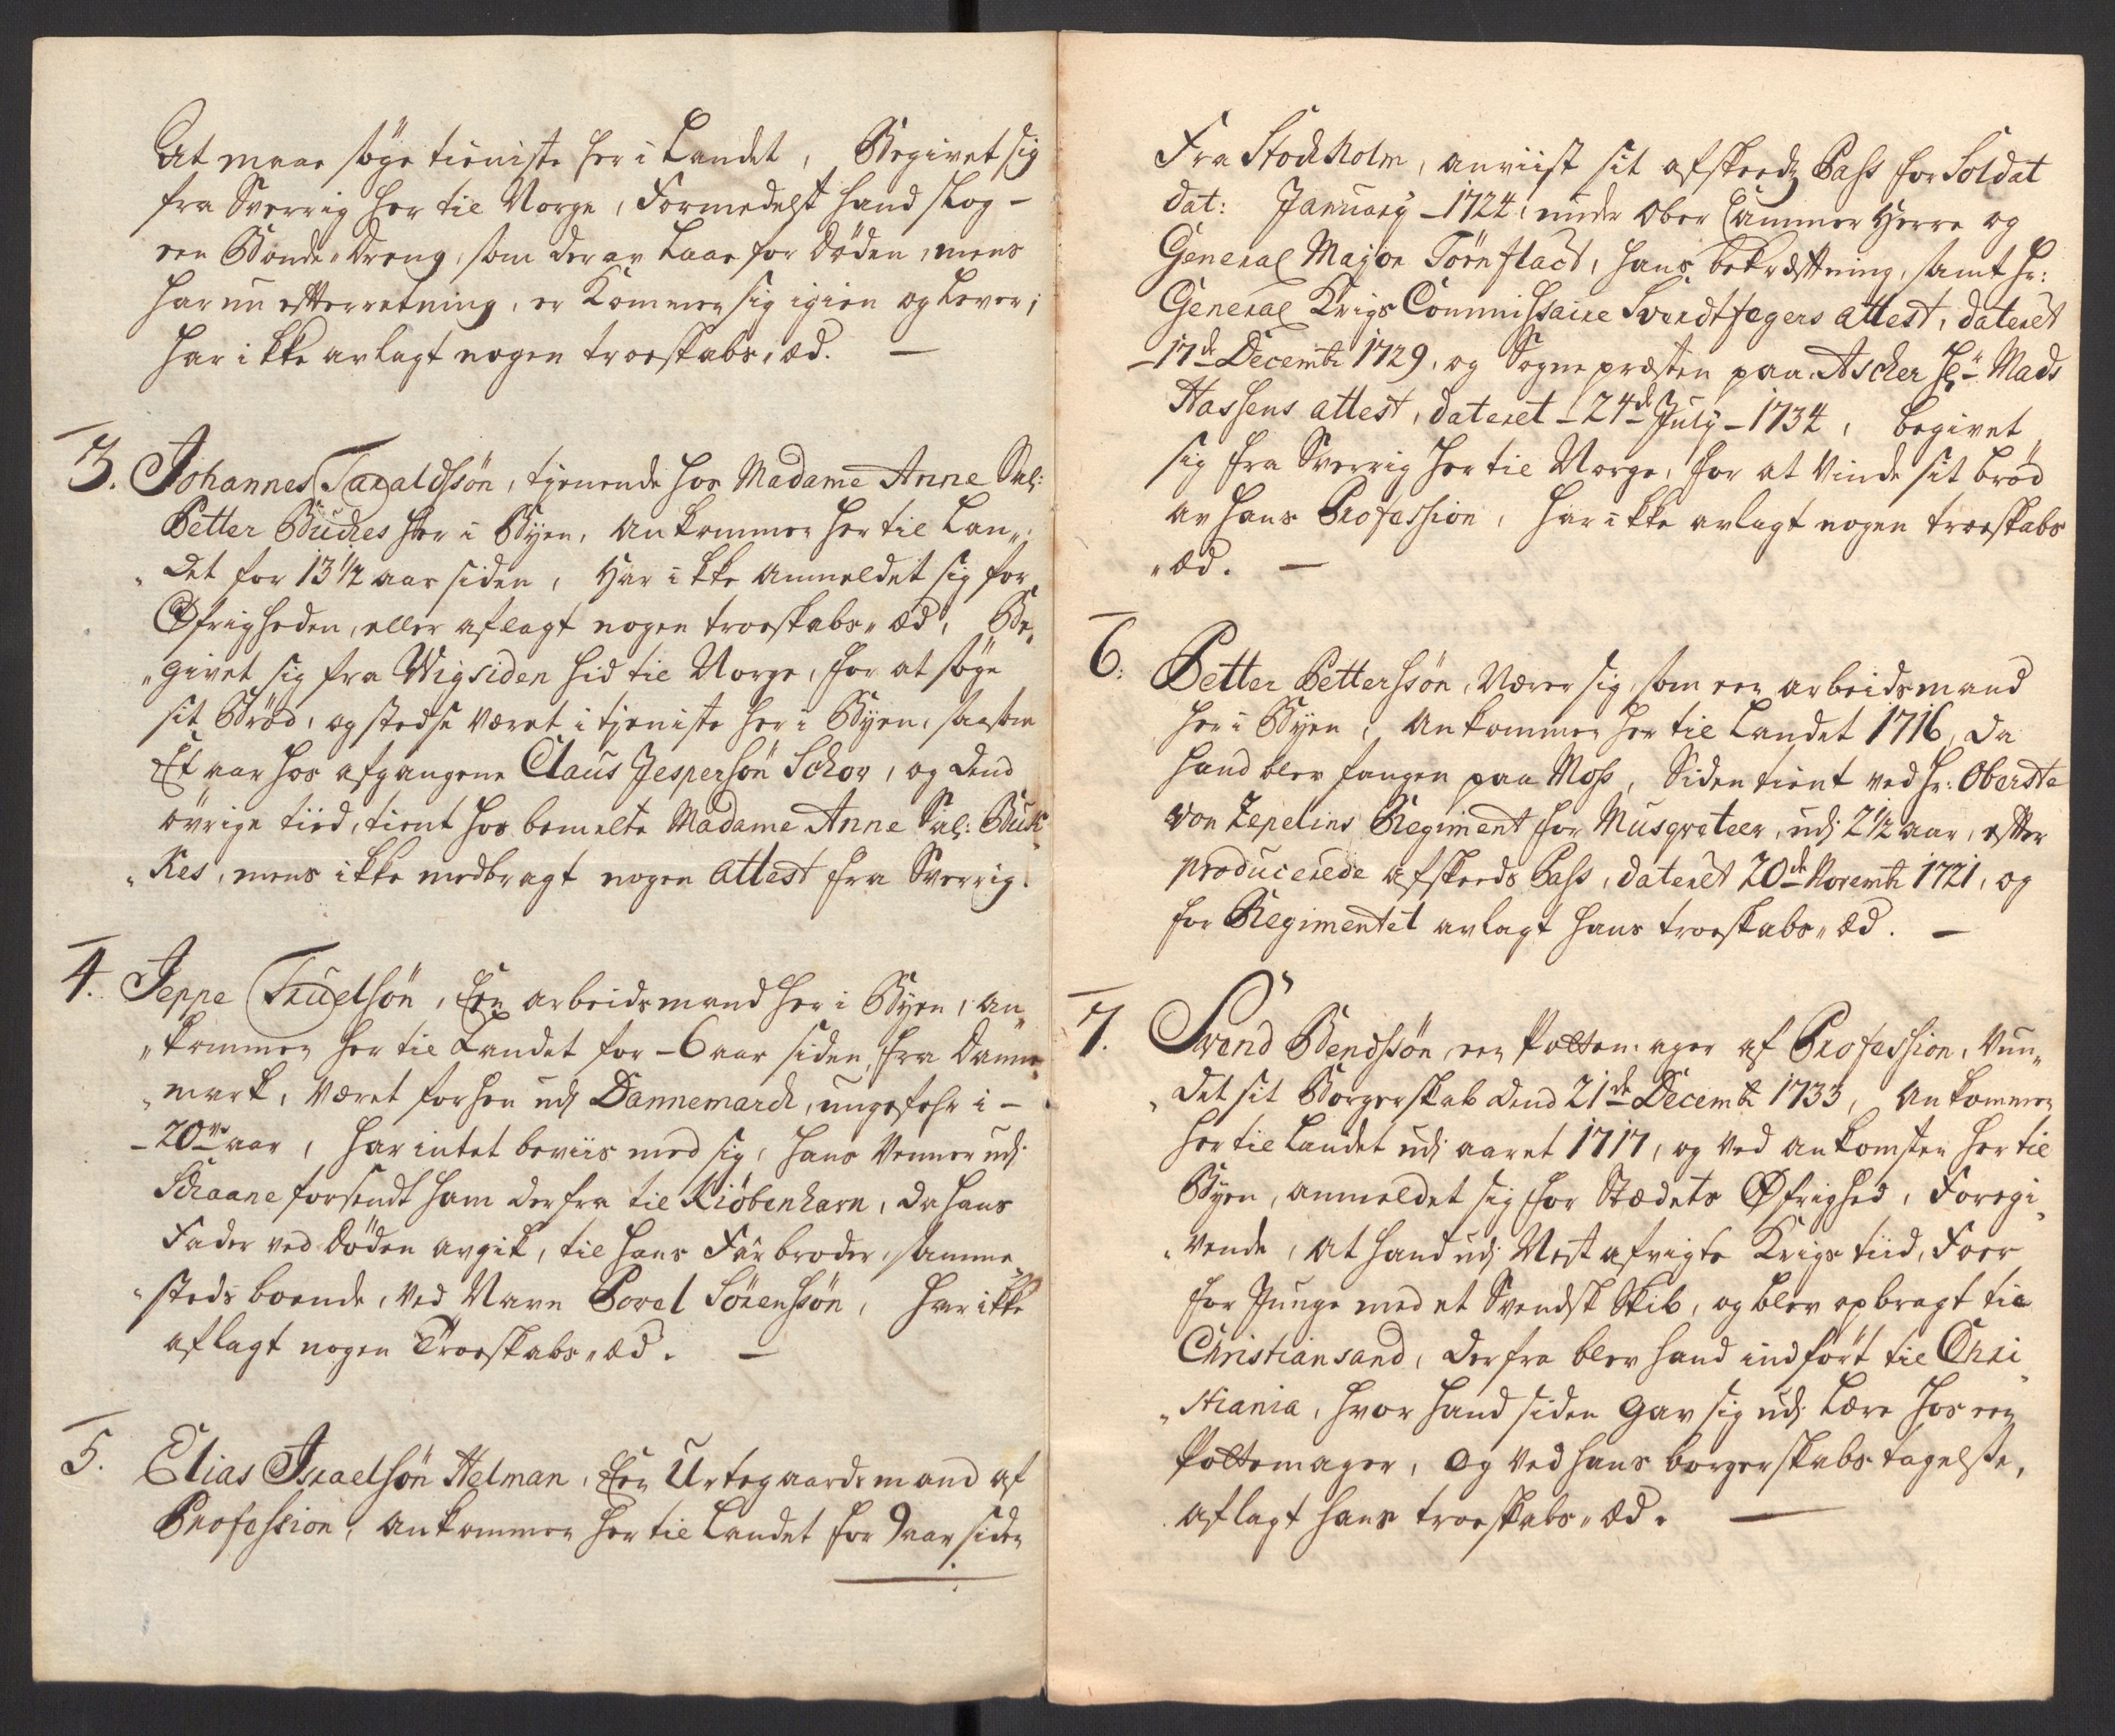 At maae söge tieniste her i Landet, Begivet sig
fra Sverrig her til Norge, Formedelst hand slog -
een Bonde-Dreng, som derav Laae for døden, mens
har nu efterretning, er Kommen sig igien og Lever;
har ikke avlagt nogen troeskabs-æd. -
3. Johannes Taraldssön, tienende hos Madame Anne Sal:
Petter Buckes her i Byen, Ankommen her til Lan„
„det for 13 1/2 aar siden, Har ikke Anmeldet sig for
Øfrigheden, eller aflagt nogen troeskabs„æd, Be„
„givet sig fra Wigsiden hid til Norge, for at söge
sit Bröd, og stedse været i tieniste her i Byen, saasom
Et aar hos afgangene Claus Jespersön Schov, og dend
övrige tiid, tient hos bemelte Madame Anne Sal: Buk„
„kes, mens ikke medbragt nogen attest fra Sverrig.
4. Jeppe Truelsön, Een arbeidsmand her i Byen, an„
„kommen her til Landet for - 6 aar siden, fra Danne„
„mark, Været forhen udj Dannemarck, ungefehr i -
- 20ve aar, har intet beviis med sig, hans Venner udj
Schaane forsendt ham derfra til Kiöbenhavn, da hans
Fader ved Döden avgik, til hans Farbroder, samme„
„steds boende, ved Navn Povel Sörenssön, har ikke
aflagt nogen Troeskabs„æd. -
5. Elias Israelsön Helman, Een Urtegaardsmand af
Profession, ankommen her til Landet for 9 aar siden
Fra Stockholm, anviist sit afskeeds Pass for Soldat
dat: January - 1724, under Ober Cammer Herre og
General Major Törnflact, hans bekræftning, samt Hr:
General Krigs Commissaire Svindtfegers attest, dateret
- 17de Decembr 1729, og Sognepræsten paa Ascher Hr Mads
Hassens attest, dateret - 24de July - 1734, begivet
sig fra Sverrig her til Norge, for at vinde sit bröd
av hans Profession, har ikke avlagt nogen troeskabs
„æd. -
6: Petter Petterssön, Nærer sig, som een arbeidsmand
her i Byen, Ankommen her til Landet 1716, da
hand blev fangen paa Moss, Siden tient ved Hr: Oberste
von Zepelins Regiment for Musqveteer, udj 2 1/2 aar, efter
producerede afskeeds Pass, dateret 20de Novembr 1721, og
for Regimentet avlagt hans troeskabs„æd. -
7. Svend Bendssön, een Pottemager af Profession, Vun„
„det sit Borgerskab dend 21de Decembr 1733, Ankommen
her til Landet udj aaret 1717, og ved ankomsten her til
Byen, anmeldet sig for Stædets Øfrighed, Foregi„
„vende, At hand udj Nest afvigte Krigs tiid, Foer
for Junge med et Svendsk Skib, og blev opbragt til
Christiansand, derfra blev hand indfört til Chri„
„stiania, hvor hand siden gav sig udj Lære hos een
Pottemager, Og ved hans borgerskabs tagelse,
aflagt hans troeskabs„æd. -